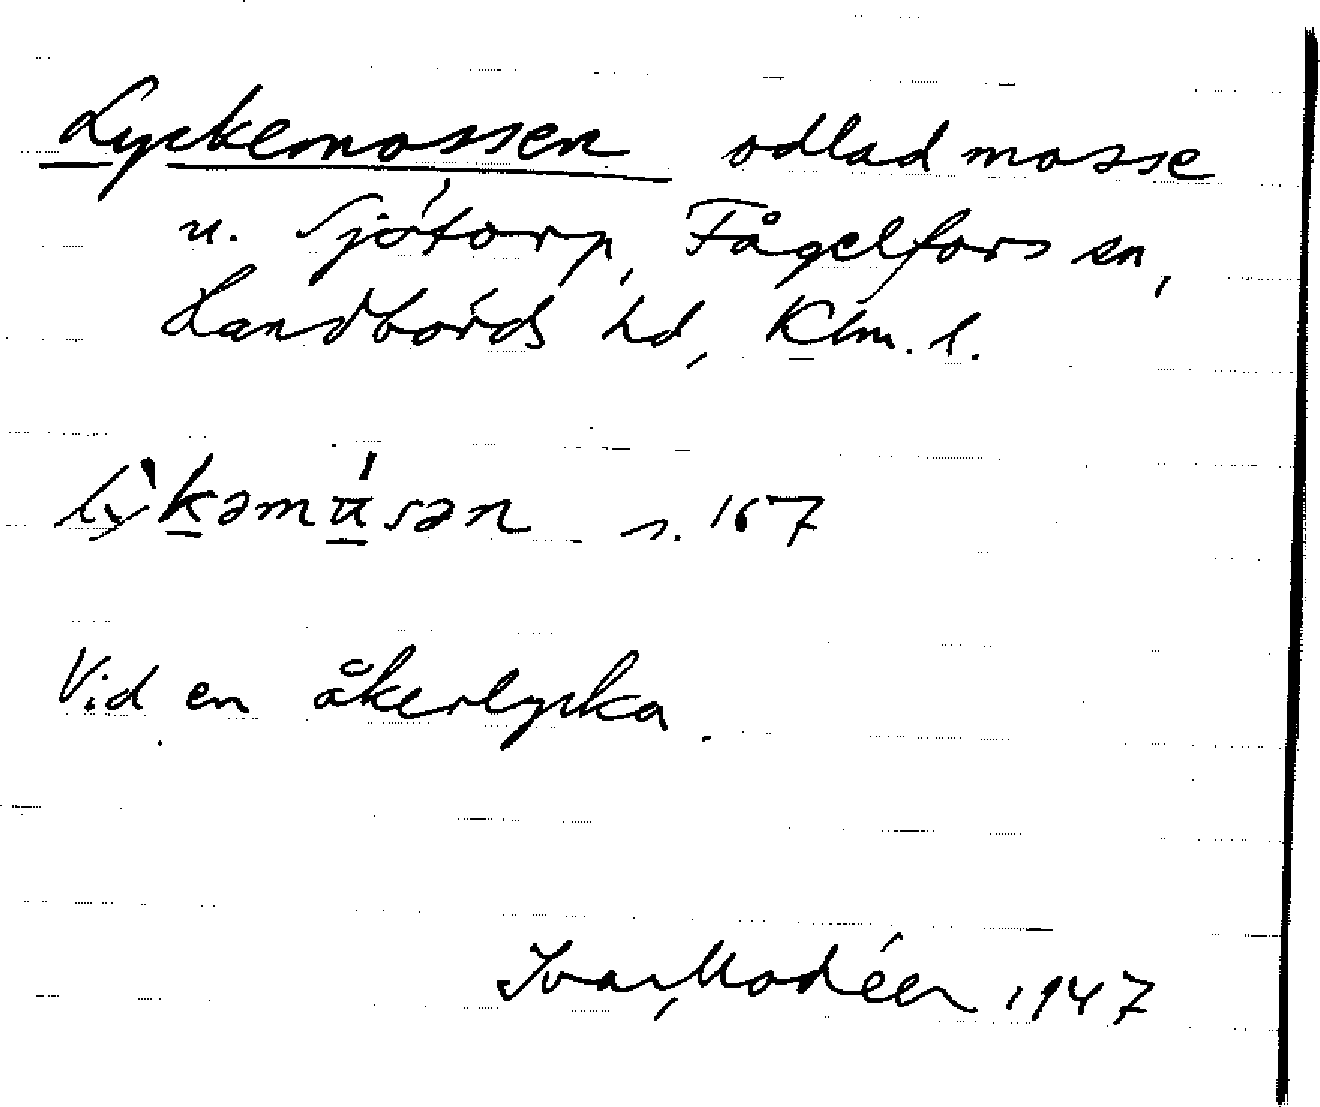 Lyckemossen odlad mosse
u. Sjötorp, Fågelfors sn,
Handbörds hd, Klm. l.
s. 167
Vid en åkerlycka.
Ivar Modéer 1947